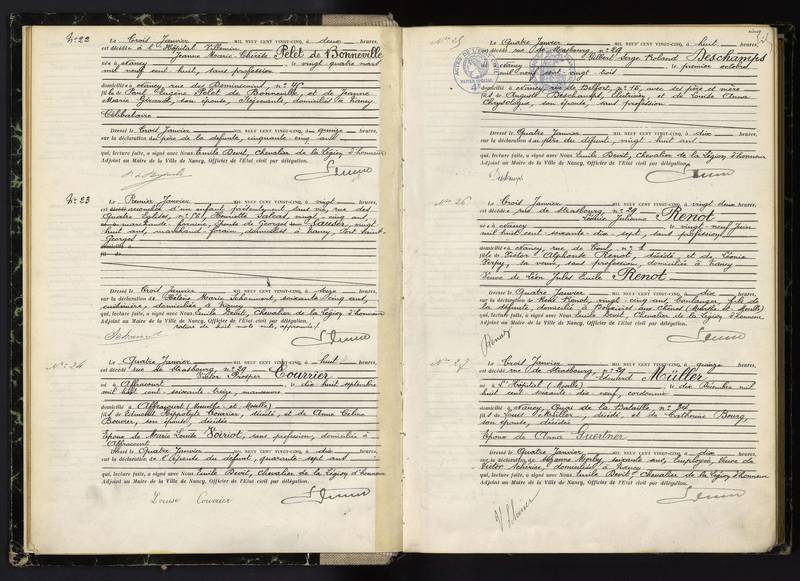 N° 22
Le Trois Janvier MIL NEUF CENT VINGT-CINQ, à deux heures,
est décédée à l'Hôpital Villemin
Jeanne Marie Thérèse Pelet de Bonneville
née à Nancy le vingt quatre mars
mil neuf cent huit, sans profession
domiciliée à Nancy, rue de
fille de Paul Eugène Pelet de Bonneville, et de Jeanne
Marie Girard, son épouse, domiciliés à Nancy
Célibataire
Dressé le Trois Janvier MIL NEUF CENT VINGT-CINQ, à quinze heures,
sur la déclaration du père de la défunte, cinquante-cinq ans
qui, lecture faite, a signé avec Nous Emile Devit, Chevalier de la Légion d'honneur
Adjoint au Maire de la Ville de Nancy, Officier de l'Etat civil par délégation.
N° 23
Le Premier Janvier MIL NEUF CENT VINGT-CINQ, à vingt heures,
est un enfant présentement sans vie, rue des
Quatre Eglises, Henriette vingt cinq ans,
marchande foraine, épouse de Georges Kauser, vingt
huit ans, marchand forain, domiciliés à Nancy, Port Saint
Georges
Dressé le Trois Janvier MIL NEUF CENT VINGT-CINQ, à seize heures,
sur la déclaration de Hélène Marie soixante cinq ans,
domiciliée à Nancy
qui, lecture faite, a signé avec Nous Emile Devit, Chevalier de la Légion d'honneur
Adjoint au Maire de la Ville de Nancy, Officier de l'Etat civil par délégation.
rature de huit mots nuls, approuvée
N° 24
Le Quatre Janvier MIL NEUF CENT VINGT-CINQ, à huit heures,
est décédé rue de Strasbourg n° 29
Victor Prosper Courrier
né à Affracourt le dix huit septembre
mil huit cent soixante treize, manoeuvre
domicilié à Affracourt (Meurthe-et-Moselle)
fils de Edmond Hippolyte Courrier, décédé, et de Anne Céline
Bouvier, son épouse, décédée
Epoux de Marie Louise Voiriot, sans profession, domiciliée à
Affracourt
Dressé le Quatre Janvier MIL NEUF CENT VINGT-CINQ, à dix heures,
sur la déclaration de l'épouse du défunt, quarante-sept ans
qui, lecture faite, a signé avec Nous Emile Devit, Chevalier de la Légion d'honneur
Adjoint au Maire de la Ville de Nancy, Officier de l'Etat civil par délégation.
Louise Courrier
N° 25
Le Quatre Janvier MIL NEUF CENT VINGT-CINQ, à huit heures,
est décédé rue de Strasbourg n° 29
Gilbert Serge Roland Deschamps
né à Nancy le premier octobre
mil neuf cent vingt trois
domicilié à Nancy, rue de Belfort, n° 15, avec ses père et mère
fils de Auguste Deschamps, et de Louise Anna
Chrysologue, son épouse, sans profession
Dressé le Quatre Janvier MIL NEUF CENT VINGT-CINQ, à dix heures,
sur la déclaration du père du défunt, vingt huit ans
qui, lecture faite, a signé avec Nous Emile Devit, Chevalier de la Légion d'honneur
Adjoint au Maire de la Ville de Nancy, Officier de l'Etat civil par délégation.
Deschamps
N° 26
Le Trois Janvier MIL NEUF CENT VINGT-CINQ, à vingt deux heures,
est décédée rue de Strasbourg, n° 29
Julienne Renot
née à Nancy le vingt-neuf Juin
mil huit cent soixante-dix sept, sans profession
domiciliée à Nancy, rue de Toul, n° 1
fille de Victor Alphonse Renot, décédé, et de Léonie
sa veuve, sans profession, domiciliée à Nancy
Veuve de Léon Jules Emile Renot
Dressé le Quatre Janvier MIL NEUF CENT VINGT-CINQ, à dix heures,
sur la déclaration de René Renot, vingt-cinq ans, boulanger, fils de
la défunte, domicilié à (Meurthe et Moselle)
qui, lecture faite, a signé avec Nous Emile Devit, Chevalier de la Légion d'honneur
Adjoint au Maire de la Ville de Nancy, Officier de l'Etat civil par délégation.
N° 27
Le Trois Janvier MIL NEUF CENT VINGT-CINQ, à quinze heures,
est décédé rue de Strasbourg, n° 29
Edouard Müller
né à l'Hôpital (Moselle) le dix Décembre mil
huit cent soixante dix neuf, cordonnier
domicilié à Nancy, Quai de la Bataille, n° 24
fils de Louis Müller, décédé, et de Catherine Bourg,
son épouse, décédée
Epoux de Anna Guertner
Dressé le Quatre Janvier MIL NEUF CENT VINGT-CINQ, à dix heures,
sur la déclaration de Suzanne soixante ans, employée, veuve de
Victor domiciliée à Nancy
qui, lecture faite, a signé avec Nous Emile Devit, Chevalier de la Légion d'honneur
Adjoint au Maire de la Ville de Nancy, Officier de l'Etat civil par délégation.